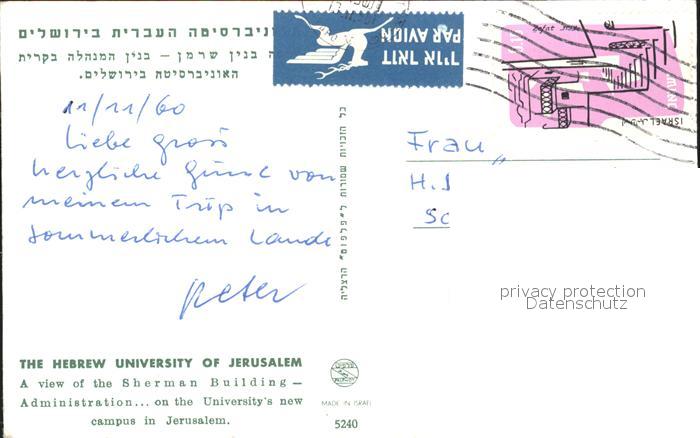 אוניברסיטה העברית בירושלים
בנין שרמן — בנין המנהלה בקרית
האוניברסיטה בירושלים.
דואר אויר
PAR AVION
ISRAEL
11/11/60
Liebe
herzliche Grüße von
meinem Trip in
sommerlichem Lande
Peter
Frau
H.J
Sc
כל הזכויות שמורות ל"פלפוט" הרצליה
privacy protection
Datenschutz
THE HEBREW UNIVERSITY OF JERUSALEM
A view of the Sherman Building —
Administration... on the University's new
campus in Jerusalem.
MADE IN ISRAEL
5240